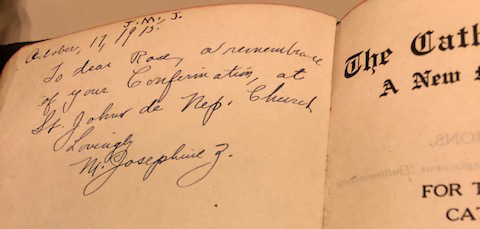 J.M.J.
October, 17, 1915.
To dear Rose, a remembrance
of your Confirmation, at
St. Johns de Nep. Church
Lovingly
M. Josephine Z.
The Cath
A New
FOR T
CAT